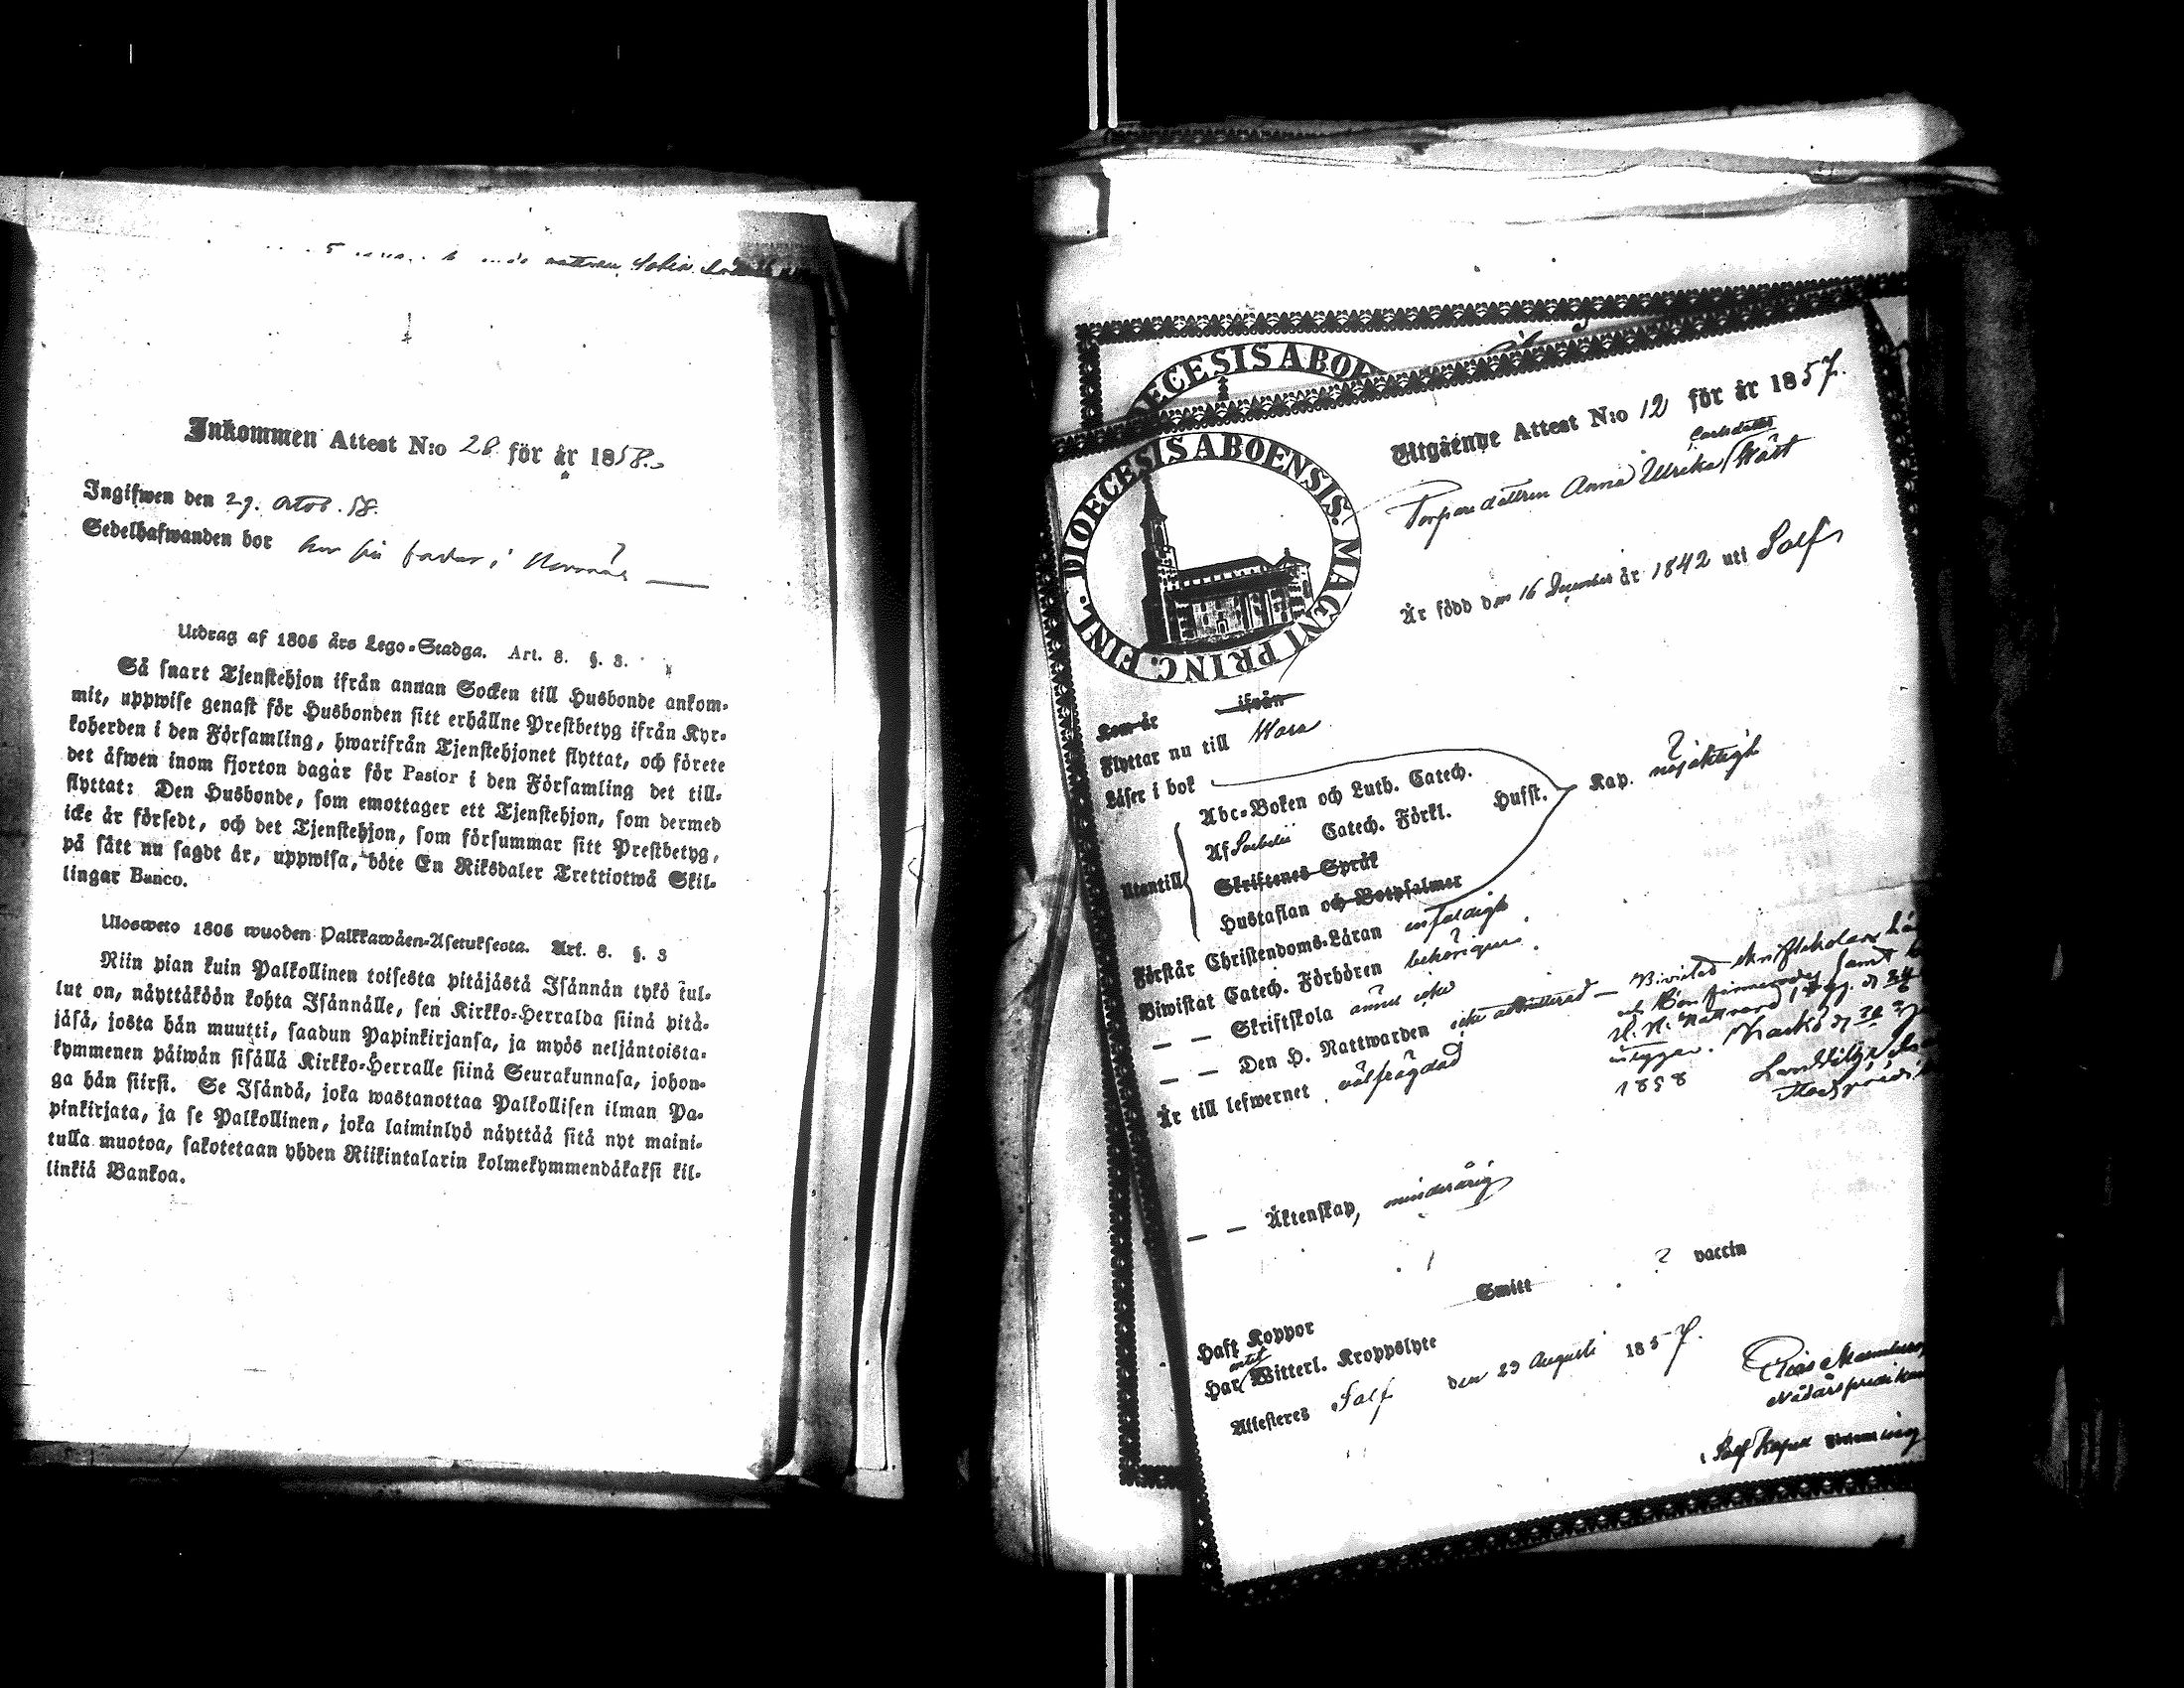 Inkommen Attest N:o 28 för år 1858.
Ingifwen den 29. Octob. 58.
Sedelhafwanden bor hos sin fader i
Utdrag af 1805 års Lego-Stadga. Art. 8. §. 3.
Så snart Tjenstehjon ifrån annan Socken till Husbonde ankom-
mit, uppwise genast för Husbonden sitt erhållne Prestbetyg ifrån Kyr-
koherden i den Församling, hwarifrån Tjenstehjonet flyttat, och förete
det äfwen inom fjorton dagar för Pastor i den Församling det till-
flyttat: Den Husbonde, som emottager ett Tjenstehjon, som dermed
icke är försedt, och det Tjenstehjon, som försummar sitt Prestbetyg,
på sätt nu sagdt är, uppwisa, böte En Riksdaler Trettiotwå Skil-
lingar Banco.
Ulosweto 1805 wuoden Palkkawäen-Asetuksesta. Art. 8. §. 3
Niin pian kuin Palkollinen toisesta pitäjästä Isännän tykö tul-
lut on, näyttäköön kohta Isännälle, sen Kirkko-Herralda siinä pitä-
jäsä, josta hän muutti, saadun Papinkirjansa, ja myös neljäntoista-
kymmenen päiwän sisällä Kirkko-Herralle siinä Seurakunnasa, johon-
ga hän siirsi. Se Isändä, joka wastanottaa Palkollisen ilman Pa-
pinkirjata, ja se Palkollinen, joka laiminlyö näyttää sitä nyt maini-
tulla muotoa, sakotetaan yhden Riikintalarin kolmekymmendäkaksi kil-
linkiä Bankoa.
DIOECESIS ABOE
DIOECESIS ABOENSIS. MAGNI PRINC. FINL.
Utgående Attest N:o 12 för år 1857.
Carlsdotter
Torparedottren Anna Ulrika Wäst
Är född den 16 December år 1842 uti Solf
Kom år ifrån
Flyttar nu till Wasa
Läser i bok
Abc-Boken och Luth. Catech.
Utantill Af Svebelii Catech. Förkl. Husst. Kap. nöjaktigt
Skriftenes Språk
Hustaflan och Botpsalmer
Förstår Christendoms-Läran enfaldigt
Biwistat Catech. Förhören behörigen.
— — Skriftskola ännu icke
— — Den H. Nattwarden icke admitterad — Bivistad skriftskolan
och Confirmerades samt
H. H. Nattvard
1858
Är till lefwernet välfrägdad
— — Äktenskap, minderårig
Haft Koppor Smitt vaccin
intet
Har Witterl. Kroppslyte
Attesteres Solf den 29 Augusti 1857.
Solf Kapell